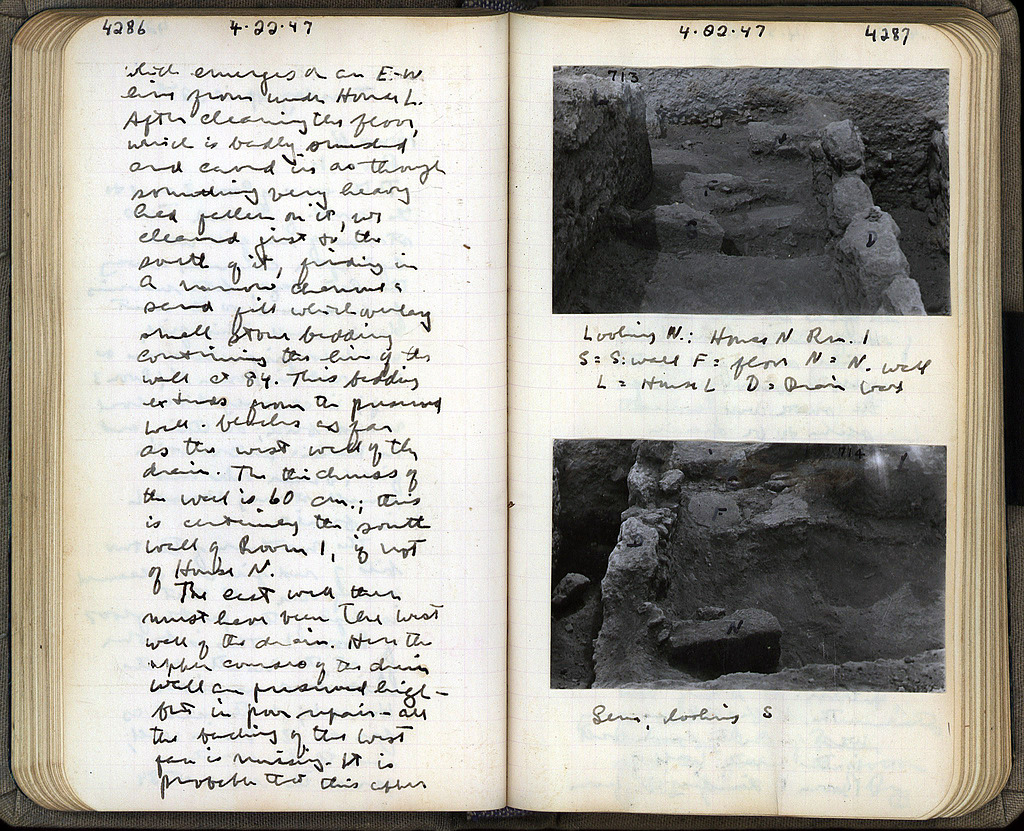 4286 4·22·47
which emerges on an E-W
line from under House L.
After cleaning the floor,
which is badly smashed
and caved in as though
something very heavy
had fallen on it, we
cleaned just to the
south of it, finding in
a narrow channel a
sand fill which overlay
small stone bedding
continuing the line of the
wall at 84. This bedding
extends from the preserved
wall as far
as the west wall of the
drain. The thickness of
the wall is 60 cm.; this
is certainly the south
wall of Room 1, if not
of House N.
The east wall then
must have been the west
wall of the drain. Here the
upper courses of the drain
wall are preserved high –
but in poor repair – all
the backing of the west
face is missing. It is
probable that this upper
4·22·47 4287
713
N
F
S
D
Looking N.: House N Rm. 1
S = S. wall F = floor N = N. wall
L = House L D = Drain wall
714
F
D
N
Same, looking S